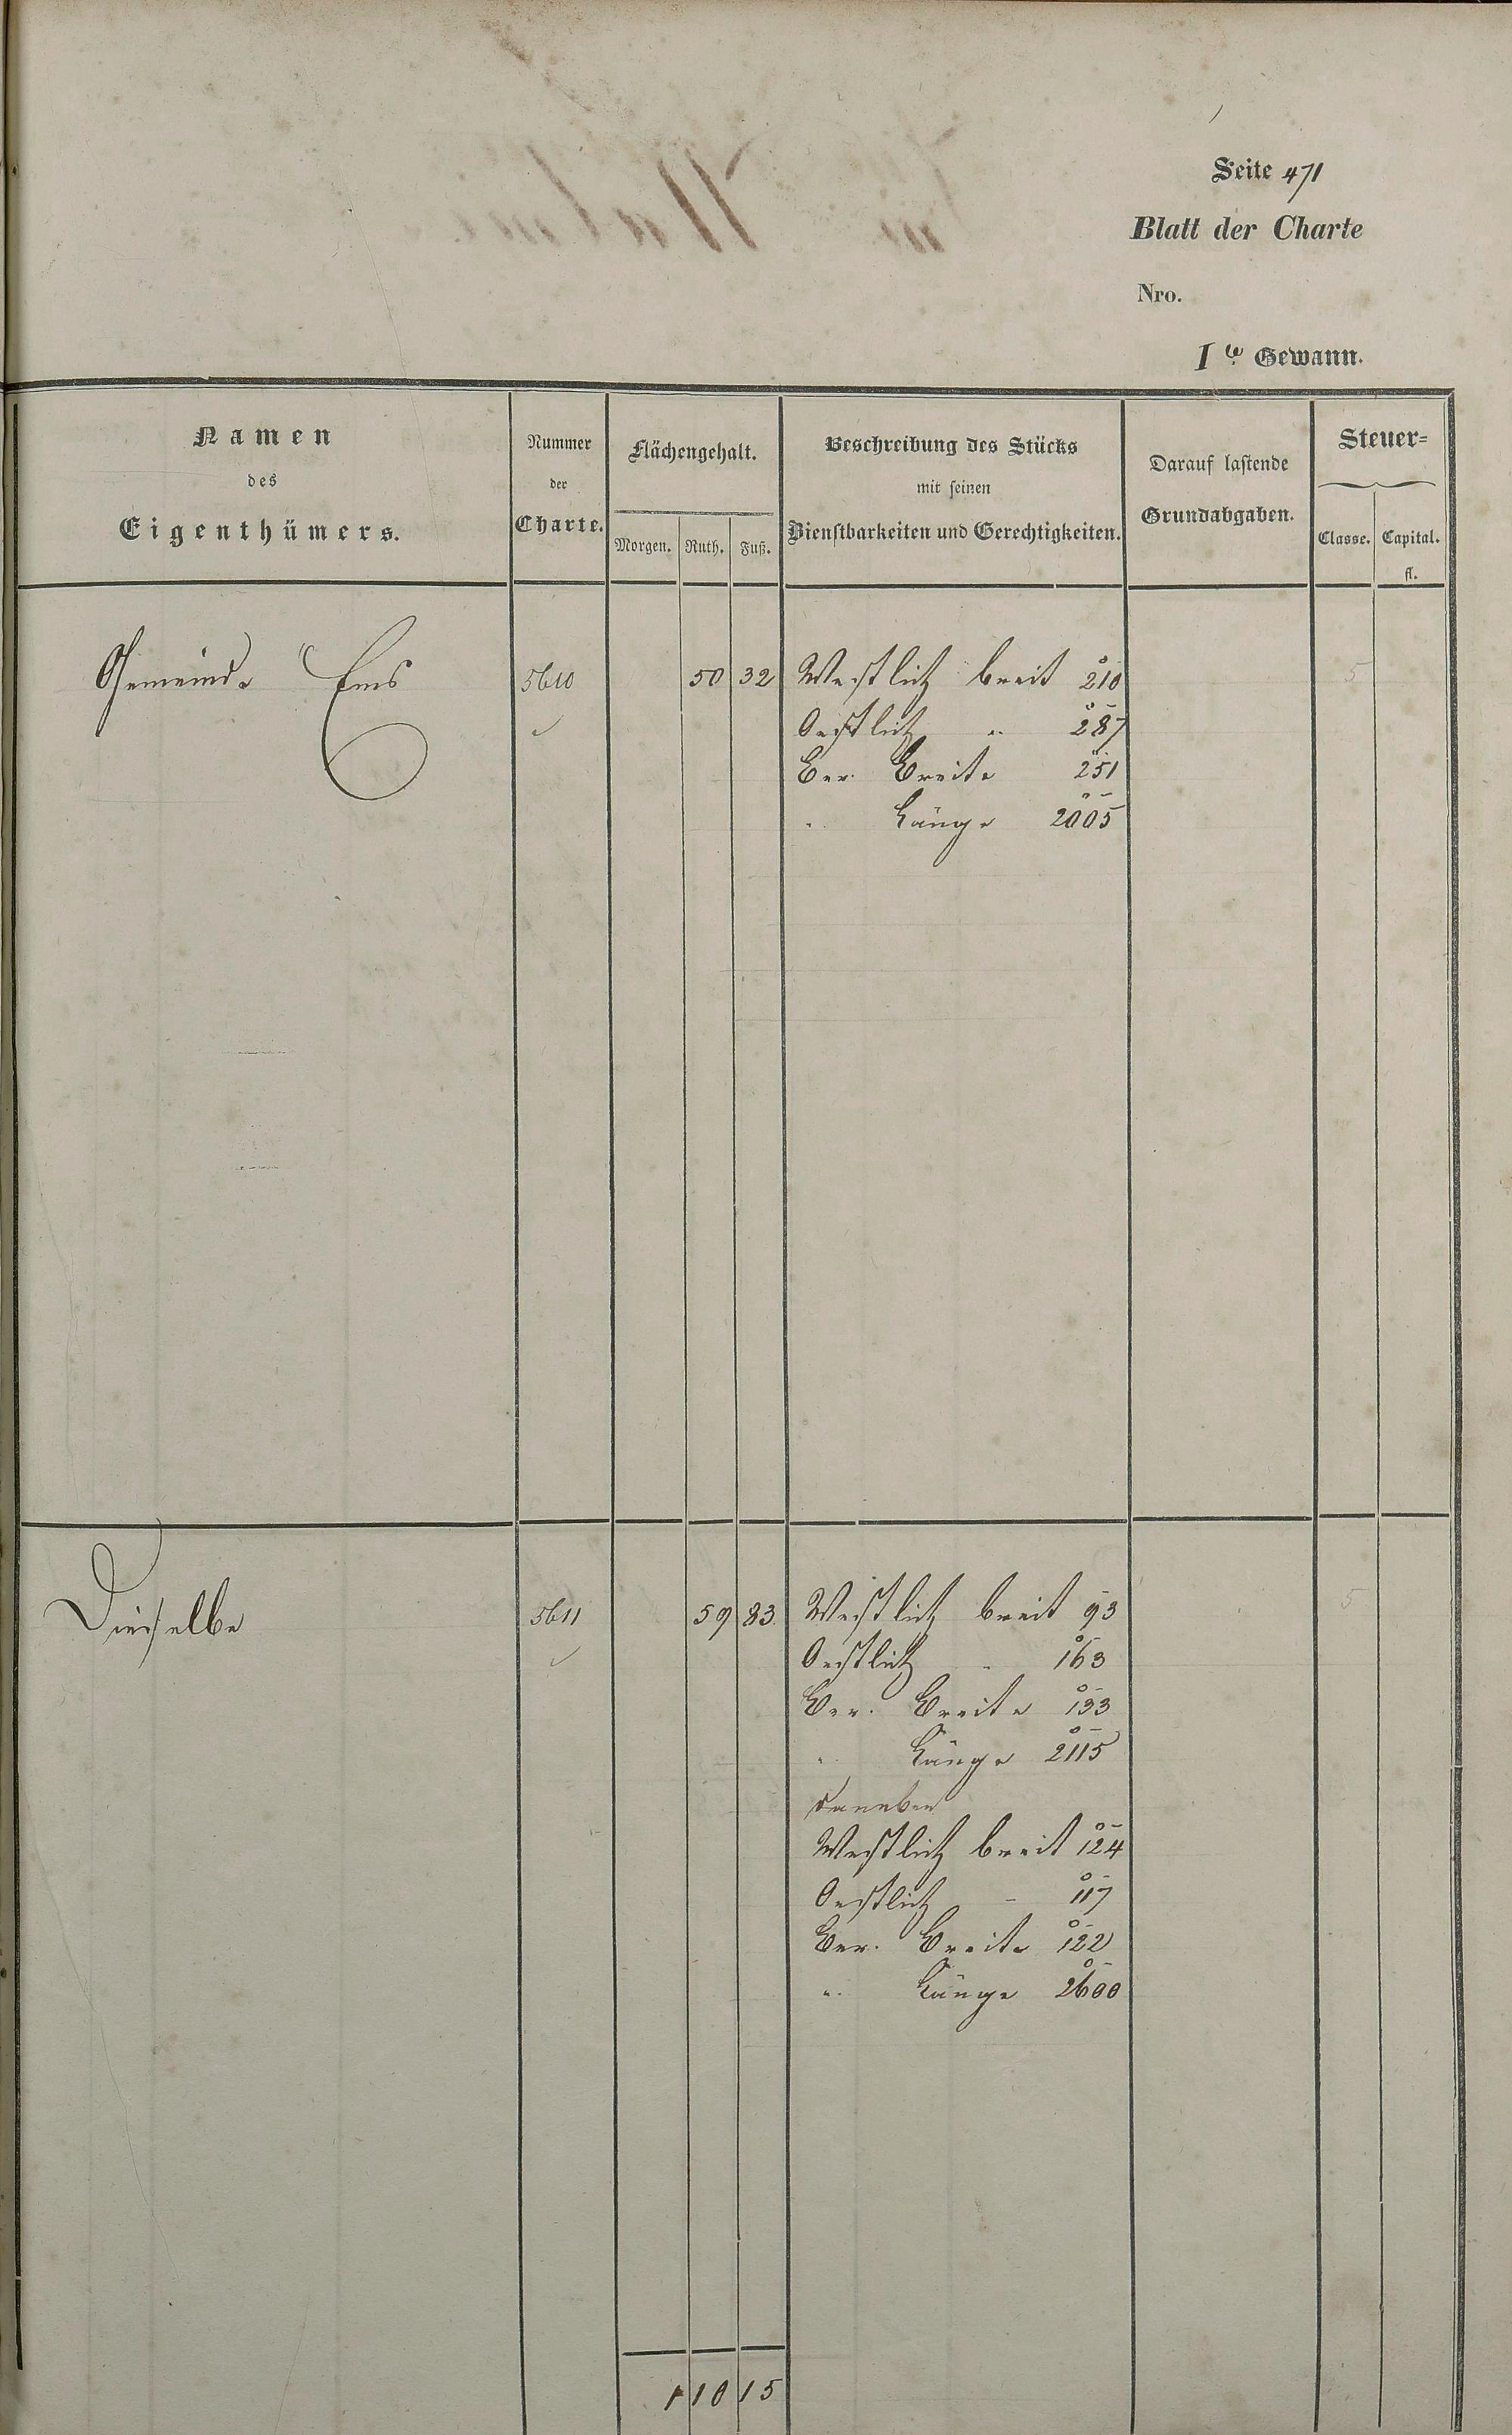 Seite 471
Blatt der Charte
Nro.
Ite Gewann.
Namen
des
Eigenthümers.
Nummer
der
Charte.
Flächengehalt.
Morgen. Ruth. Fuß.
Beschreibung des Stücks
mit seinen
Dienstbarkeiten und Gerechtigkeiten.
Darauf lastende
Grundabgaben.
Steuer=
Classe. Capital.
fl.
Gemeinde Ems 5610 50 32 Westlich breit 210 5
Oestlich " 287
Ber. Breite 251
" Länge 2005
Dieselbe 5611 59 83 Westlich breit 93 5
Oestlich " 163
Ber. Breite 133
" Länge 2115
daneben
Westlich breit 124
Oestlich - 117
Ber. Breite 122
" Länge 2600
1 10 15